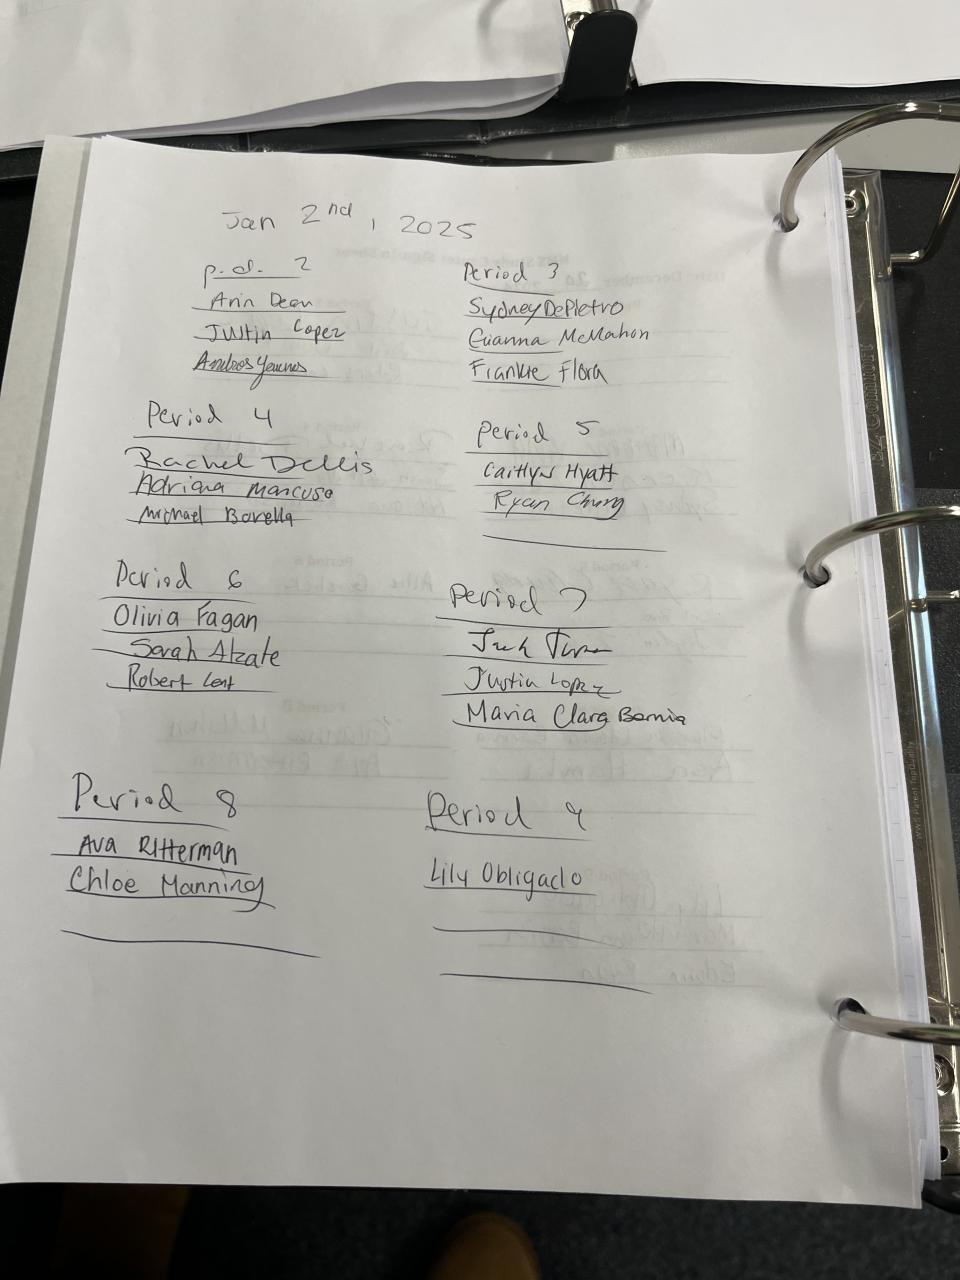 Jan 2nd, 2025
p.d. 2
Arin Dean
Justin Lopez
Period 3
Sydney DePietro
Gianna McMahon
Frankie Flora
Period 4
Rachel Dellis
Adriana Mancuso
Michael Borella
Period 5
Caitlyn Hyatt
Ryan Chung
Period 6
Olivia Fagan
Sarah Alzate
Robert
Period 7
Justin Lopez
Maria Clara Bernia
Period 8
Ava Ritterman
Chloe Manning
Period 9
Lily Obligado